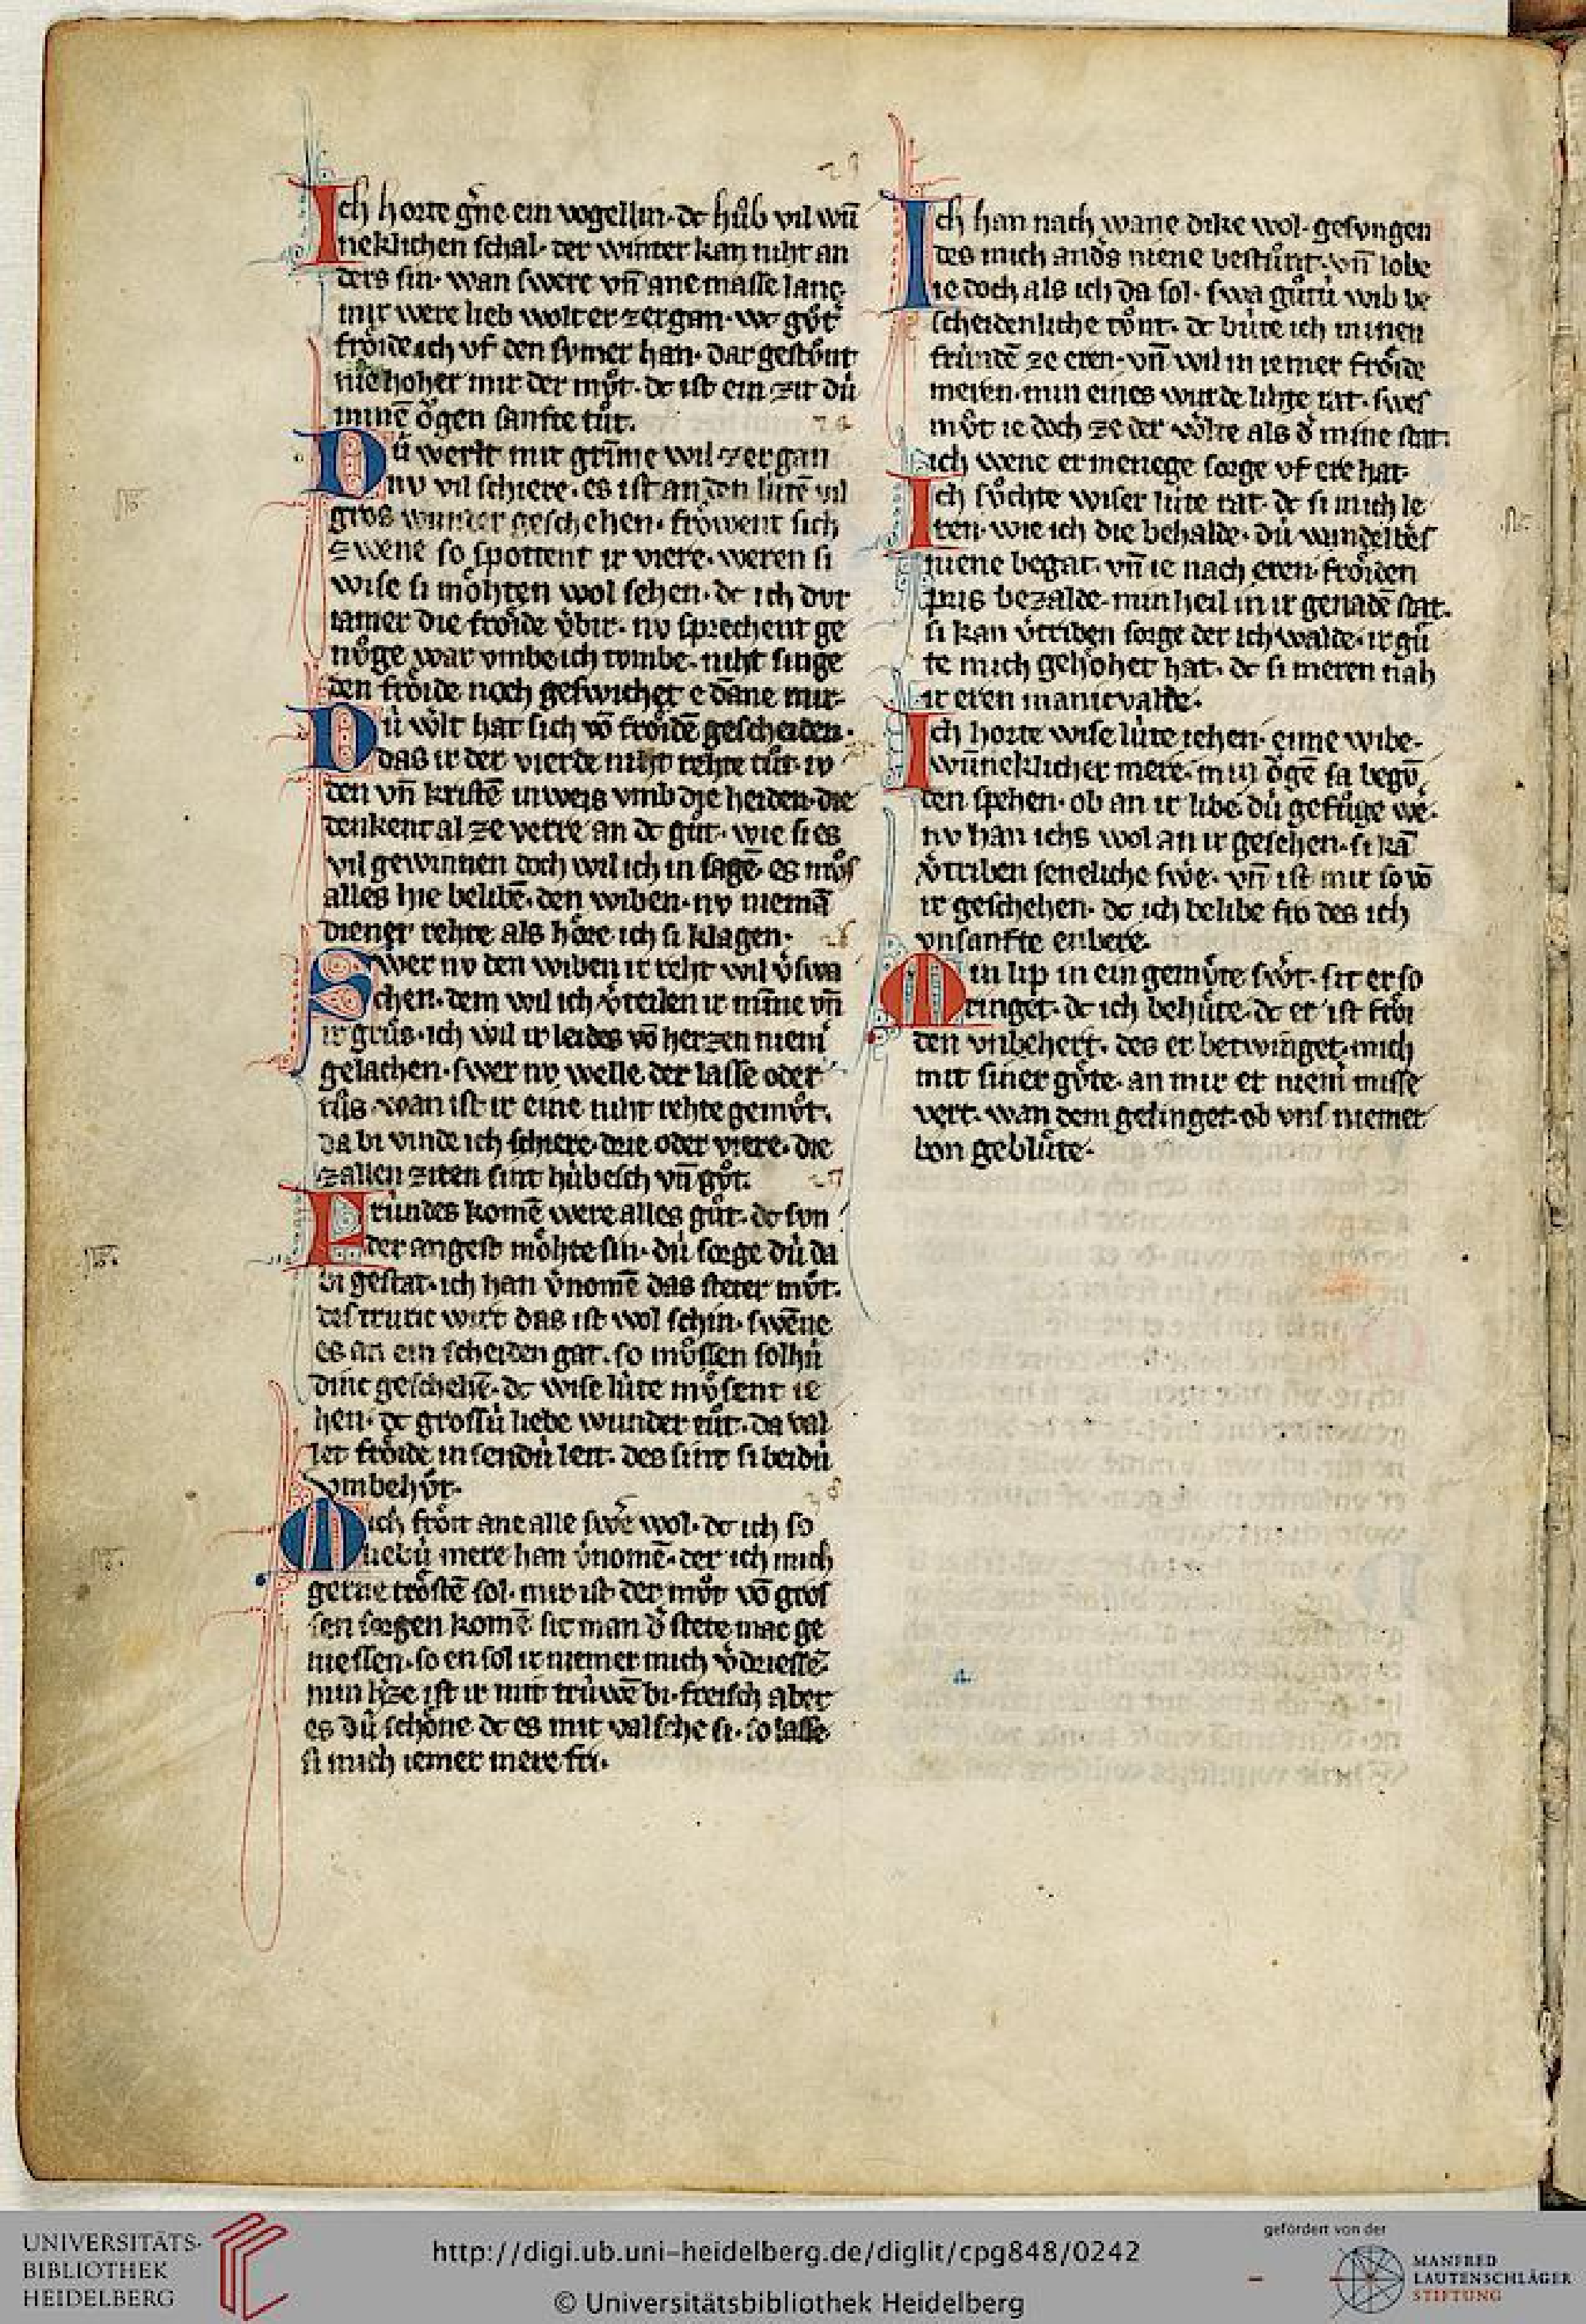 Ich horte g͛ne ein vogellin· dc hůb vil wu̅
neklichen schal· der winter kan niht an
ders sin· wan swere vn̄ ane masse lanc
mir were lieb wolt er zergan· wc gůt
froͤide ich vf den svmer han· dar gestůnt
nie hoher mir der můt· dc ist ein zit dù
mine̅ oͤgen sanfte tůt.
Dù werlt mit gri̅me wil zergan
nv vil schiere· es ist an den lùte̅ vil
gros wunder geschehen· froͤwent sich
zwene so spottent ir viere· weren si
wise si moͤhten wol sehen· dc ich dvr
iamer die froͤide v̊bir· nv sprechent ge
nůge war vmbe ich tombe· niht singe
den froͤide noch geswichet e da̅ne mir·
Dù w͛lt hat sich vo̅ froͤide̅ gescheiden·
das ir der vierde niht rehte tůt· iv
den vn̄ kriste̅ in weis vmb die heiden· die
denkent al ze verre an dc gůt· wie si es
vil gewinnen doch wil ich in sage̅· es můs
alles hie belibe̅· den wiben· nv niema̅
dienet rehte als hoͤre ich si klagen·
Swer nv den wiben ir reht wil v͛swa
chen· dem wil ich v͛teilen ir mi̅ne vn̄
ir grůs· ich wil ir leides vo̅ herzen niem͛
gelachen· swer nv welle der lasse oder
tůs· wan ist ir eine niht rehte gemůt·
da bi vinde ich schiere· drie oder viere· die
zallen ziten sint hùbesch vn̄ gůt·
Frùndes kome̅ were alles gůt· dc svn
der angest moͤhte sin· dù sorge dù da
bi gestat· ich han v͛nome̅ das steter můt·
des trutic wirt das ist wol schin· swe̅ne
es an ein scheiden gat· so mùssen solhù
dinc geschehe̅· dc wise lùte mùsent ie
hen· dc grossù liebe wunder tůt· da val
let froͤide in sendù leit· des sint si beidù
vmbehůt·
Mich froͤit ane alle sw͛e wol· dc ich so
liebù mere han v͛nome̅· der ich mich
gerne troͤste̅ sol· mir ist der můt vo̅ gros
sen sorgen kome̅· sit man d͛ stete mac ge
niessen· so en sol ir niemer mich v͛driesse̅·
min h͛ze ist ir mit trùwe̅ bi· freisch aber
es dù schoͤne dc es mit valsche si· so lasse
si mich iemer mere fri·
Ich han nach wane dike wol· gesvngen
des mich and͛s niene bestůnt· vn̄ lobe
ie doch als ich da sol· swa gůtù wib be
scheidenliche tůnt· dc bùte ich minen
frùnde̅ ze eren· vn̄ wil in iemer froͤide
meren· min eines wurde lihte rat· swes
můt ie doch ze der w͛lte als d͛ mine stat·
ich wene er menege sorge vf ere hat·
Ich sůchte wiser lùte rat· dc si mich le
ren· wie ich die behalde· dù wandelbes
niene begat· vn̄ ie nach eren· froͤiden
pris bezalde· min heil in ir genade̅ stat·
si kan v͛triben sorge der ich walde· ir gù
te mich gehoͤhet hat· dc si meren nah
ir eren manicvalde·
Ich horte wise lùte iehen· eime wibe·
wu̅neklicher mere· min oͤge̅ sa bego̅
den spehen· ob an ir libe· dù gefůge we͛·
nv han ichs wol an ir gesehen· si ka̅
v͛triben seneliche sw͛e· vn̄ ist mir so vo̅
ir geschehen· dc ich belibe fro des ich
vnsanfte enbere·
Min lip in ein gemůte sw͛t· sit er so
ringet· dc ich behùte· dc er ist froͤi
den vnbehert· des er betwinget· mich
mit siner gůte· an mir er niem͛ misse
vert· wan dem gelinget· ob vns niemer
bon geblùte·
UNIVERSITÄTS-
BIBLIOTHEK
HEIDELBERG
http://digi.ub.uni-heidelberg.de/diglit/cpg848/0242
© Universitätsbibliothek Heidelberg
gefördert von der
MANFRED
LAUTENSCHLÄGER
STIFTUNG